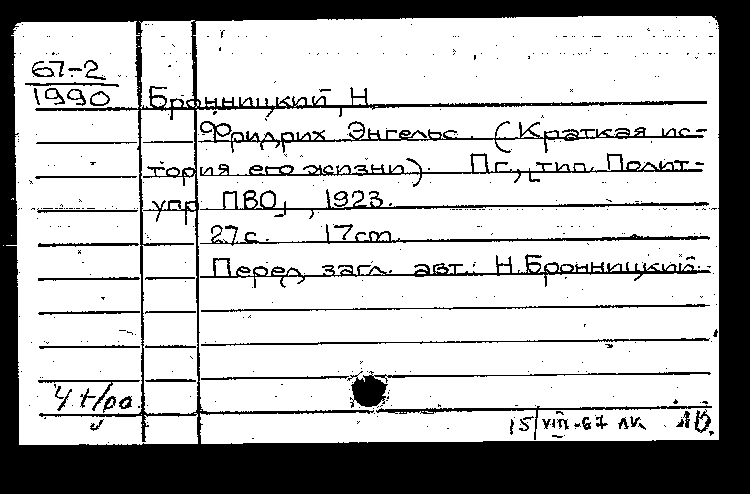 67-2
1990
Бронницкий, Н.
Фридрих Энгельс. (Краткая ис-
тория его жизни). Пг., [тип. Полит-
упр. ПВО], 1923.
27с. 17cm.
Перед загл. авт.: Н. Бронницкий.
15/VIII-67 лк